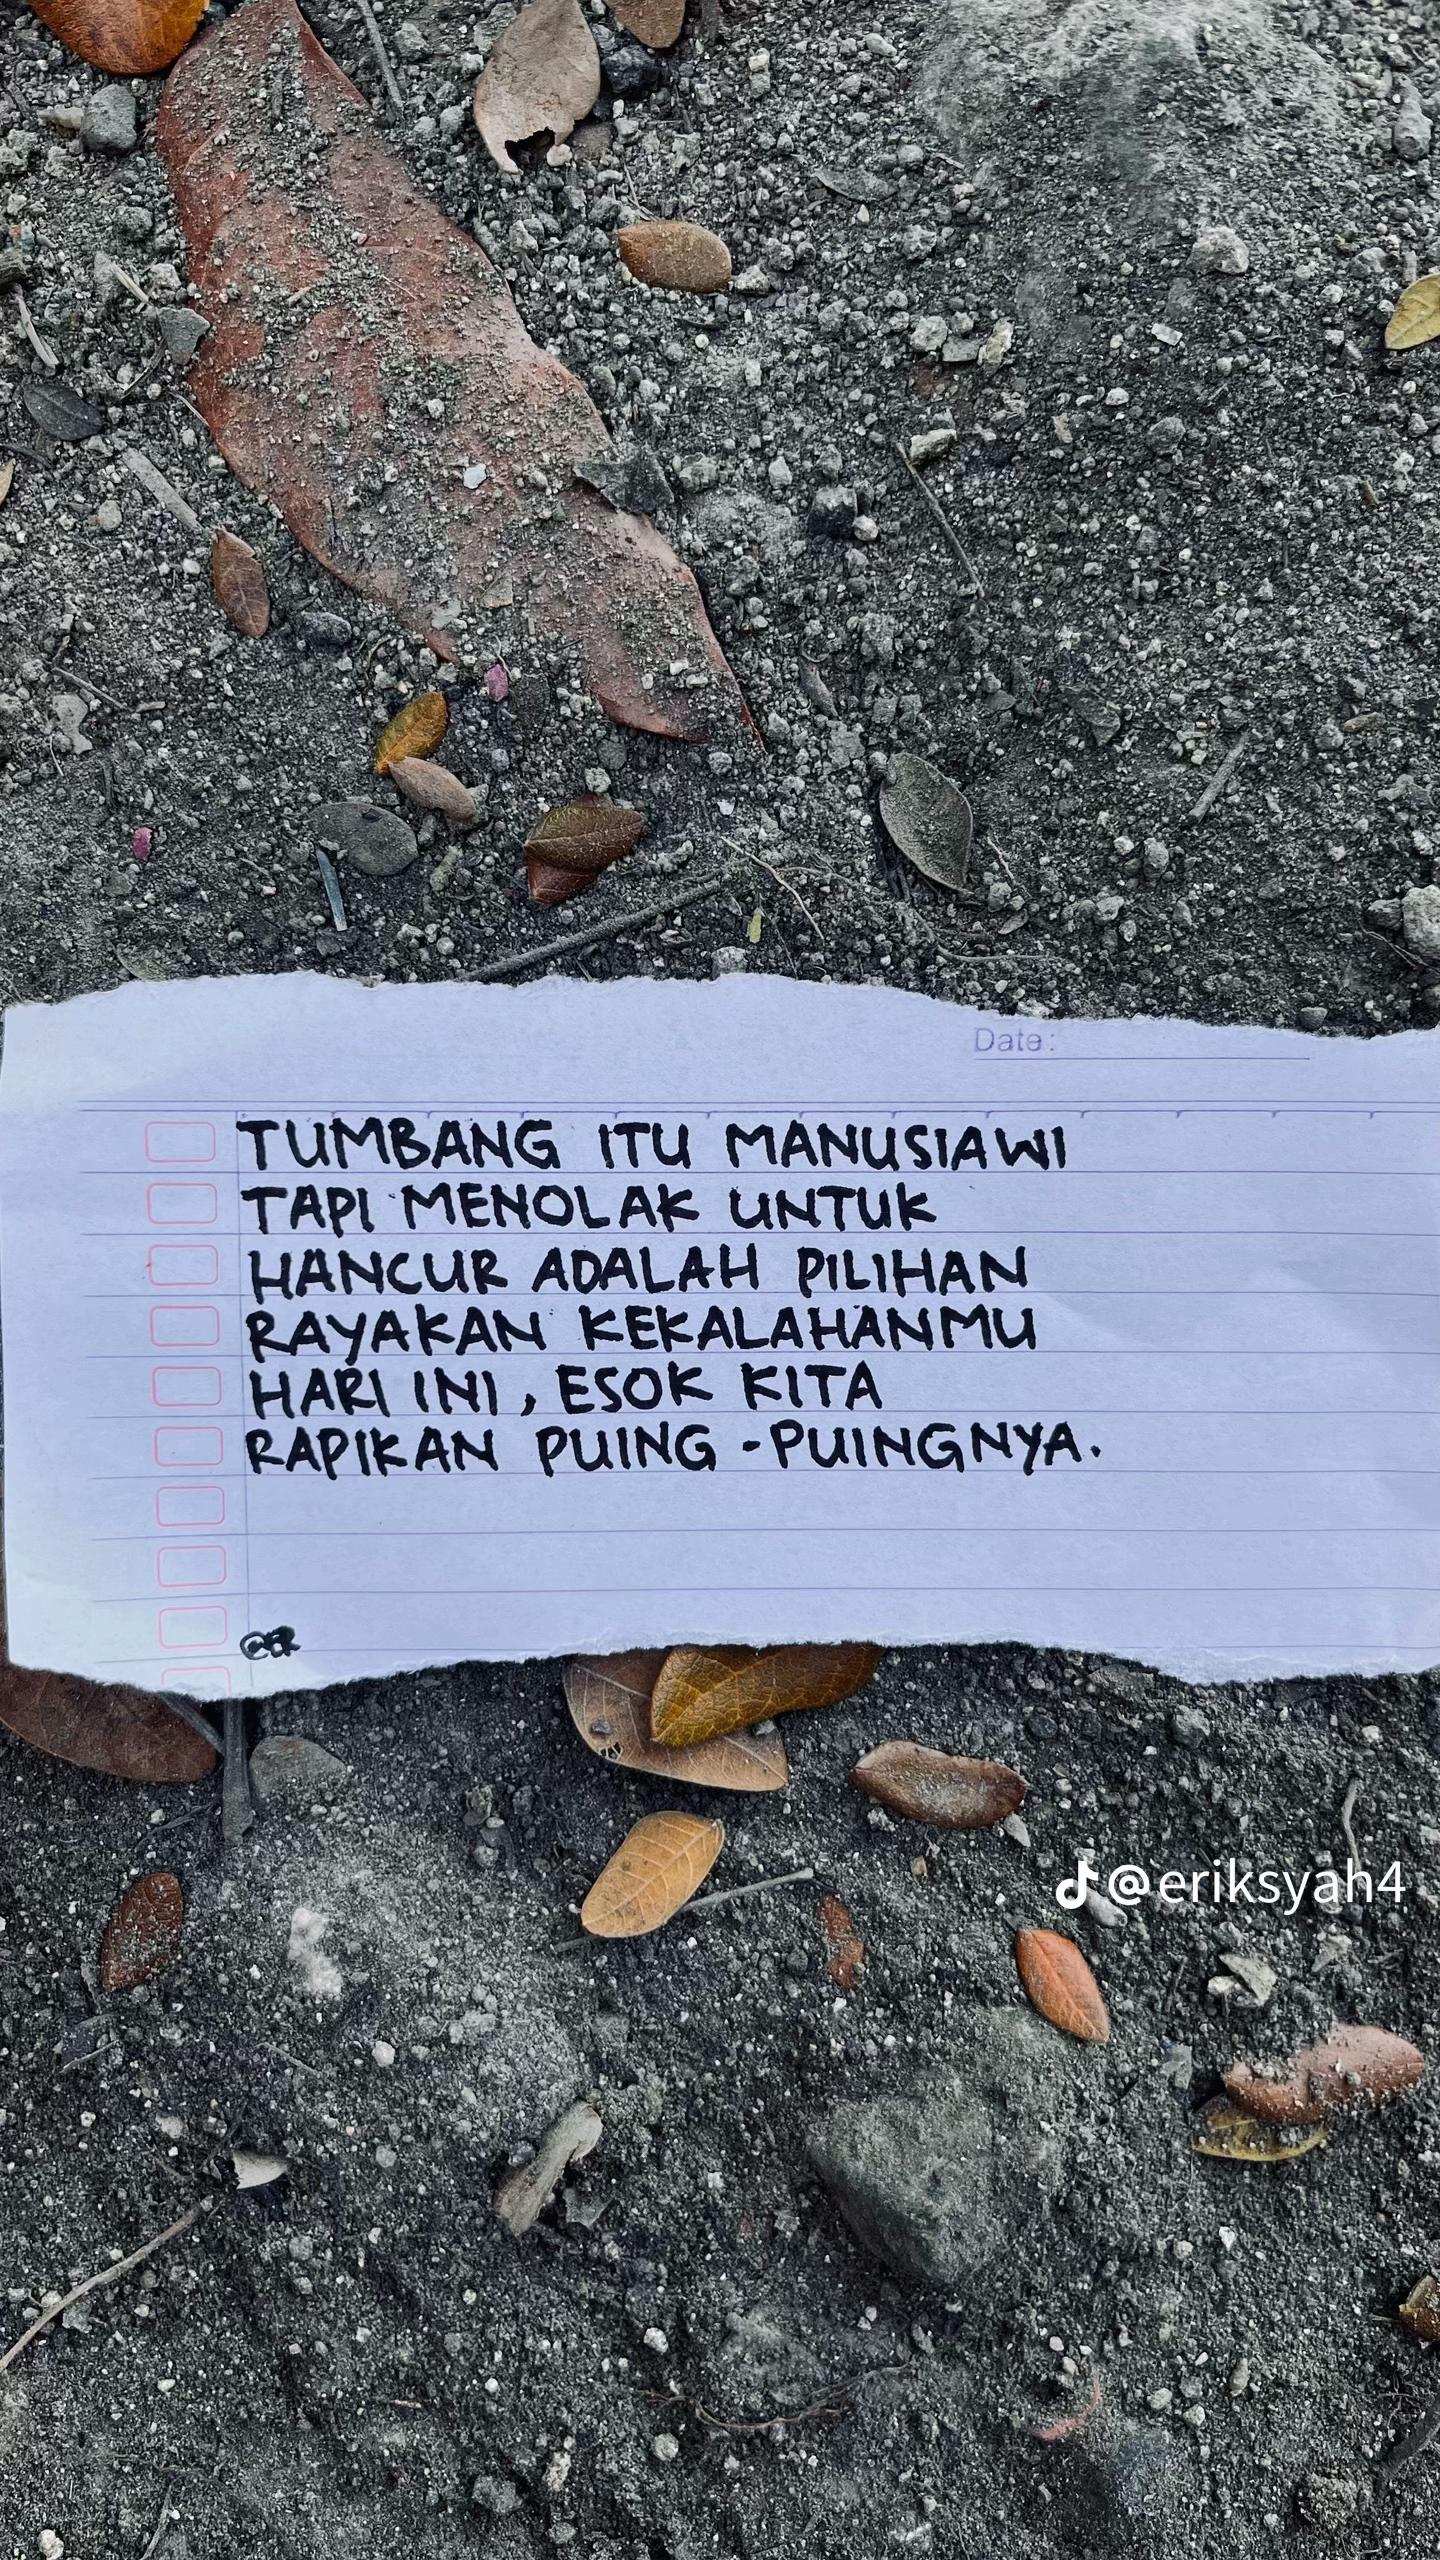 Date:
TUMBANG ITU MANUSIAWI
TAPI MENOLAK UNTUK
HANCUR ADALAH PILIHAN
RAYAKAN KEKALAHANMU
HARI INI, ESOK KITA
RAPIKAN PUING-PUINGNYA.
@ER
@eriksyah4